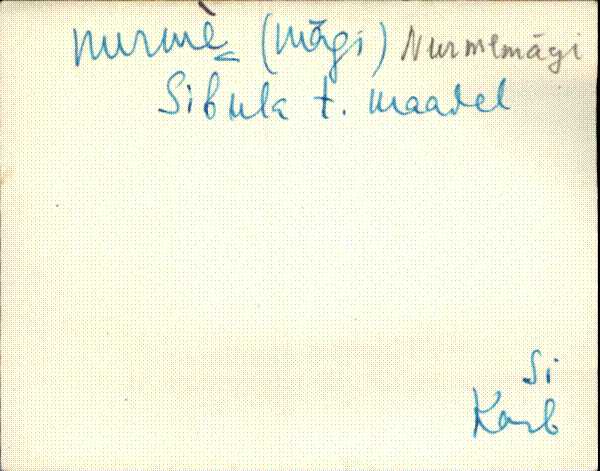 nurmè (mägi) Nurmemägi
Sibula t. maadel
Si
Karb